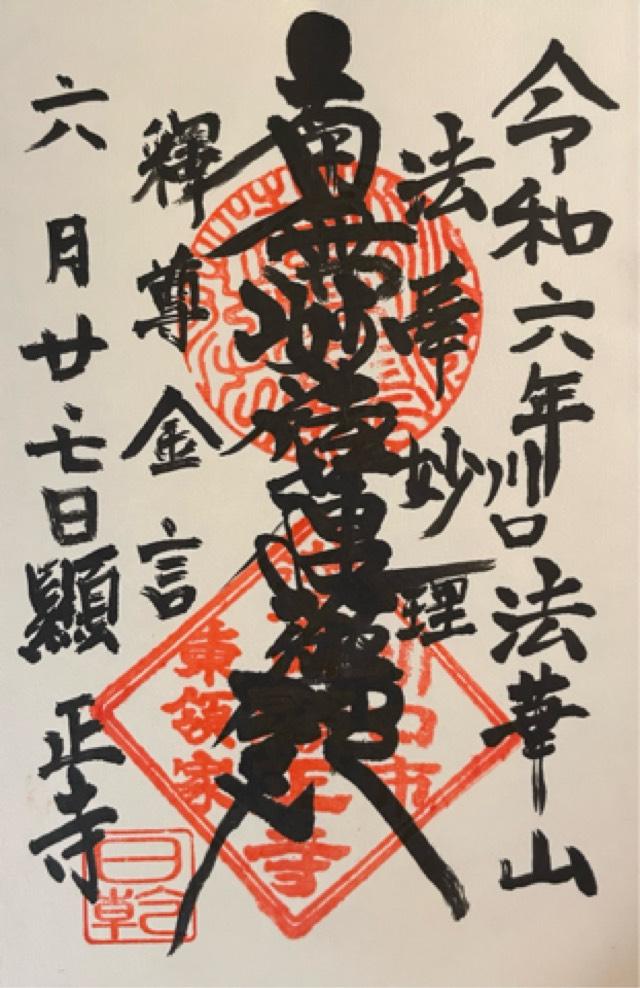 令和六年川口法華山
法華妙理
南無妙
釋尊金言
六月廿七日顯正寺
川口市
正寺
東領家
日乾